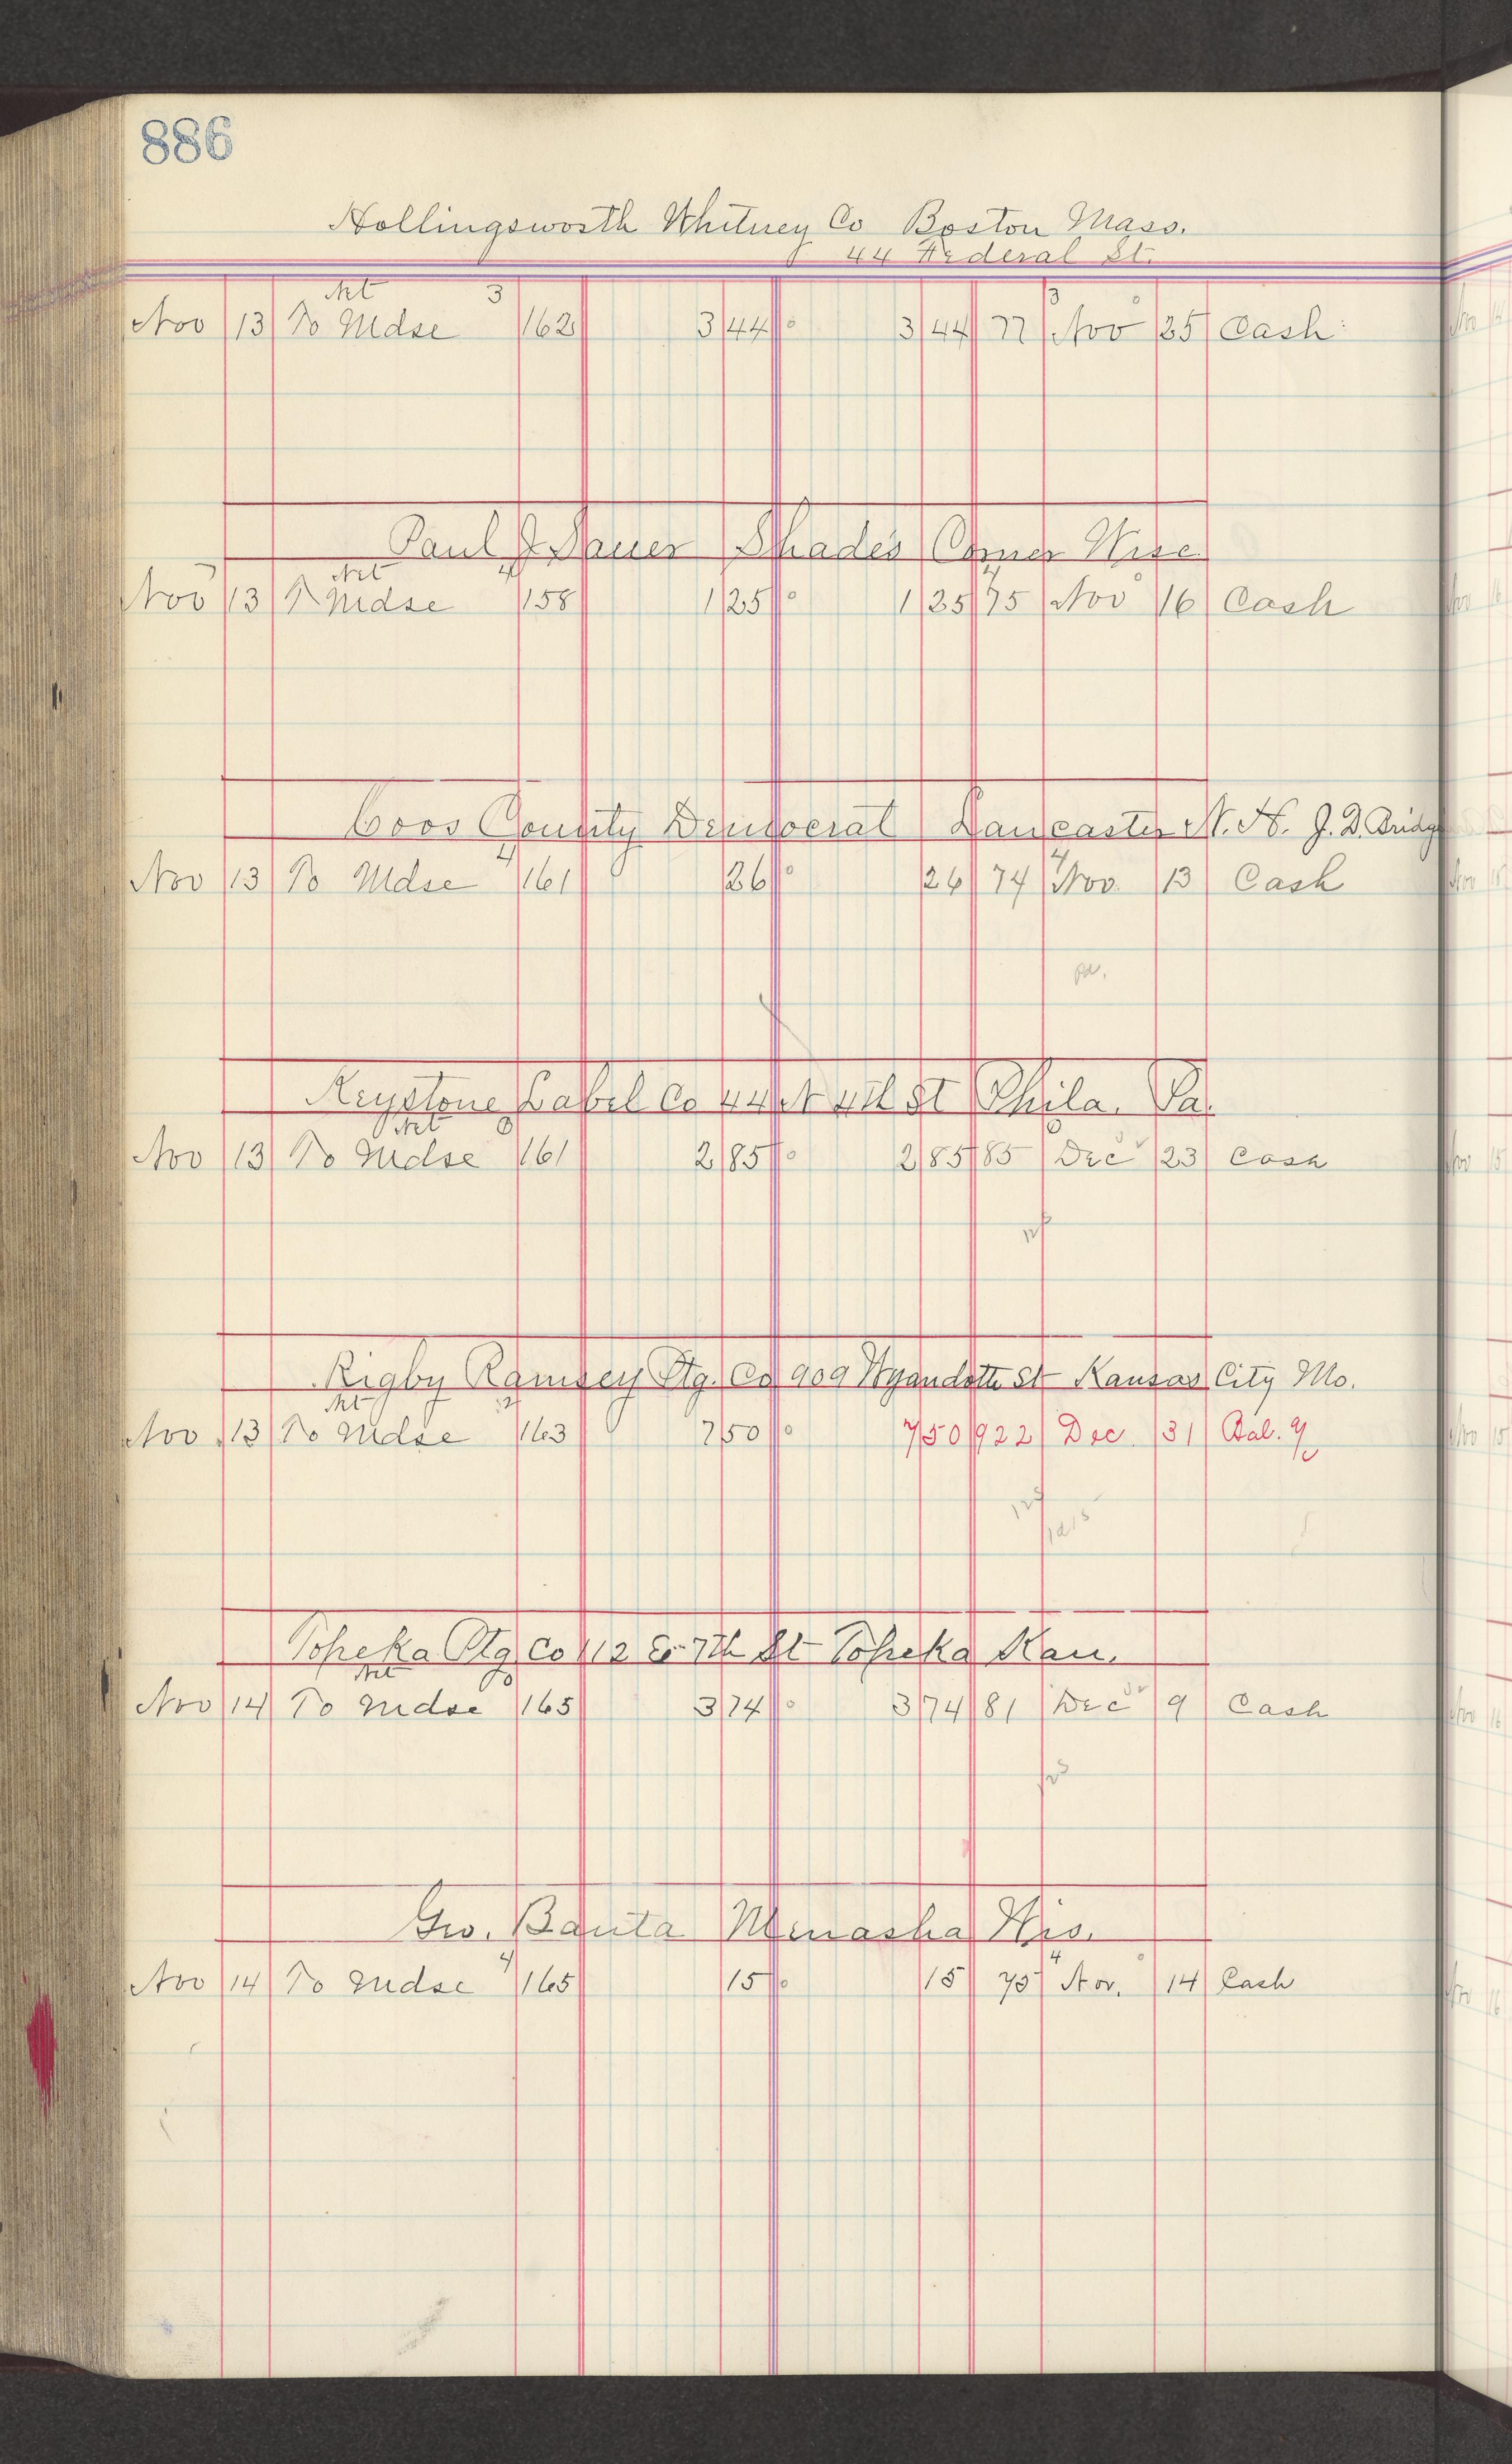 886
Hollingsworth Whitney Co Boston Mass.
44 Federal St.
Net 3 3
Nov 13 To Mdse 162 3 44 3 44 77 Nov 25 Cash
Paul J Sauer Shades Corner Wisc
Net 4 4
Nov 13 To Mdse 158 1 25 1 25 75 Nov 16 Cash
Coos County Democrat Lancaster N. H. J. D. Bridge
4 4
Nov 13 To Mdse 161 26 26 74 Nov. 13 Cash
pd.
Keystone Label Co 44 N 4th St Phila. Pa.
Net 8
Nov 13 To Mdse 161 2 85 2 85 85 Dec 23 Cash
Rigby Ramsey Ptg. Co 909 Wyandotte St Kansas City Mo.
Net 2
Nov 13 To Mdse 163 7 50 7 50 922 Dec. 31 Bal. %
Topeka Ptg Co 112 E 7th St Topeka Kan.
Net 8
Nov 14 To Mdse 165 3 74 3 74 81 Dec 9 Cash
Geo. Banta Menasha Wis.
4 4
Nov 14 To Mdse 165 15 15 75 Nov. 14 Cash